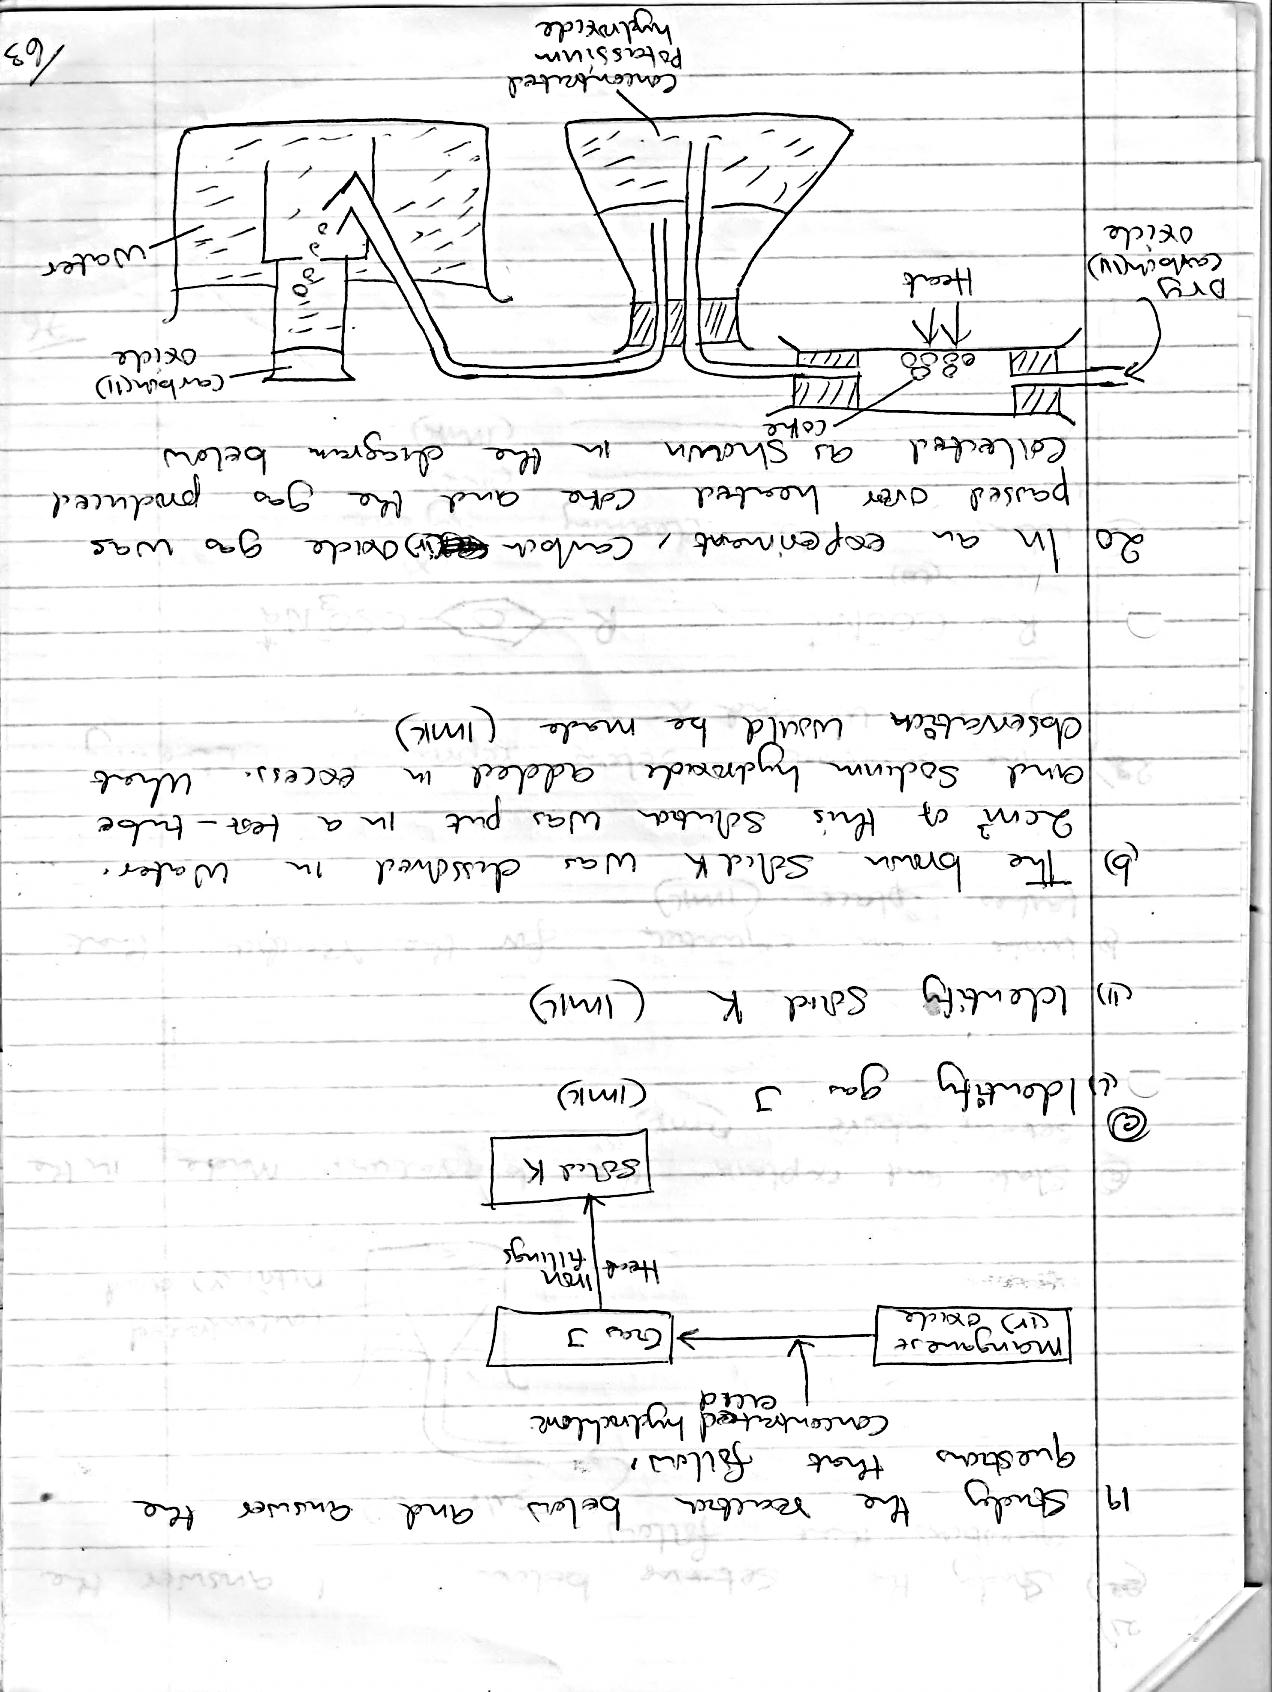 19 Study the reaction below and answer the
questions that follow.
Concentrated hydrochloric
acid
Manganese
(IV) oxide
Gas J
Heat
Iron
fillings
Solid K
(a)
(i) Identify gas J (1mk)
(ii) Identify Solid K (1mk)
(b) The brown Solid K was dissolved in water.
2cm³ of this solution was put in a test-tube
and Sodium hydroxide added in excess. What
observation would be made (1mk)
20 In an experiment, carbon (IV) oxide gas was
passed over heated coke and the gas produced
collected as shown in the diagram below
coke
Dry
Carbon(IV)
oxide
Heat
Carbon(II)
oxide
Water
Concentrated
potassium
hydroxide
/63